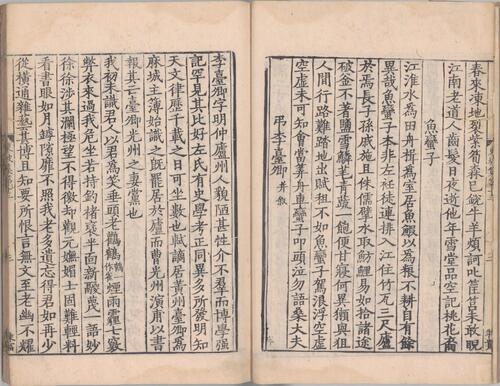 春來凍地裂紫筍森已銳牛羊煩訶叱筐筥未敢睨
江南老道人齒髮日夜逝他年雪堂品空記桃花裔
魚蠻子
江淮水為田舟楫為室居魚鰕以為粮不耕自有餘
異哉魚蠻子本非左衽徒連排入江住竹瓦三尺廬
於焉長子孫戚施且侏儒擘水取魴鯉易如拾諸途
破釜不著鹽雪鱗芼青蔬一飽便甘寢何異獺與狙
人間行路難踏地出賦租不如魚蠻子駕浪浮空虛
空虛未可知會當筭舟車蠻子叩頭泣勿語桑大夫
弔李臺卿 并敘
李臺卿字明仲廬州人貌陋甚性介不羣而博學强
記罕見其比好左氏有史學考正同異多所發明知
天文律歷千載之日可坐數也軾謫居黃州臺卿為
麻城主簿始識之既罷居於廬而曹光州演甫以書
報其亡臺卿光州之妻黨也
我初未識君人以君為笑垂頭老鸛鶴煙雨霾七竅
弊衣來過我危坐若持釣褚裒半面新鬷蔑一語妙
徐徐涉其瀾極望不得徼却觀元嫵媚士固難輕料
看書眼如月罅隙靡不照我老多遺忘得君如再少
從橫通雜藝甚博且知要所恨言無文至老幽不耀